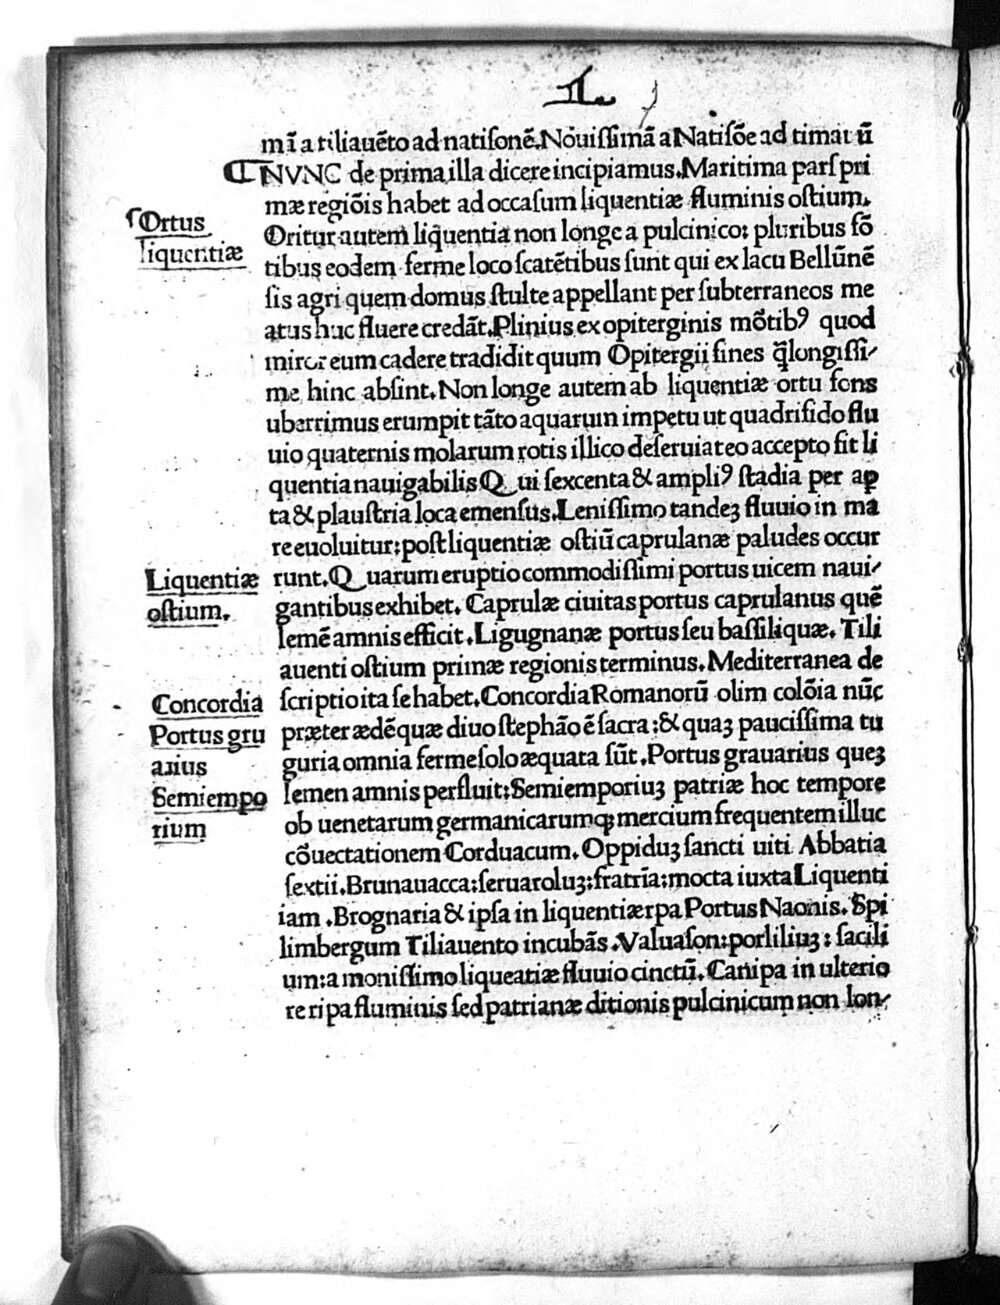 II.
mĩ a tiliauẽto ad natiſonẽ. Nouiſſimã a Natiſõe ad timauũ
NVNC de prima illa dicere incipiamus. Maritima parſ pri
mæ regiõis habet ad occaſum liquentiæ fluminis oſtium.
Ortus
Oritur autem liquentia non longe a pulcinico: pluribus fõ
liquentiæ
tibus eodem ferme loco ſcatẽtibus ſunt qui ex lacu Bellũnẽ
ſis agri quem domus ſtulte appellant per ſubterraneos me
atus huc fluere credãt. Plinius ex opiterginis mõtibꝰ quod
miror eum cadere tradidit quum Opitergii fines q̃longiſſi-
me hinc abſint. Non longe autem ab liquentiæ ortu fons
uberrimus erumpit tãto aquarum impetu ut quadrifido flu
uio quaternis molarum rotis illico deſeruiat eo accepto fit li
quentia nauigabilis Qui ſexcenta & ampliꝰ ſtadia per ap
ta & plauſtria loca emenſus. Leniſſimo tandeꝫ fluuio in ma
re euoluitur: poſt liquentiæ oſtiũ caprulanæ paludes occur
Liquentiæ
runt. Quarum eruptio commodiſſimi portus uicem naui-
oſtium.
gantibus exhibet. Caprulæ ciuitas portus caprulanus quẽ
lemẽ amnis efficit. Ligugnanæ portus ſeu baſſiliquæ. Tili
auenti oſtium primæ regionis terminus. Mediterranea de
Concordia
ſcriptio ita ſe habet. Concordia Romanorũ olim colõia nũc
Portus gru
præter ædẽ quæ diuo ſtephão ẽ ſacra: & quaꝫ pauciſſima tu
arius
guria omnia ferme ſolo æquata ſũt. Portus grauarius queꝫ
Semiempo
lemen amnis perfluit: Semiemporiuꝫ patriæ hoc tempore
rium
ob uenetarum germanicarumqꝫ mercium frequentem illuc
cõuectationem Corduacum. Oppiduꝫ ſancti uiti Abbatia
ſextii. Brunauacca: ſeruaroluꝫ: fratria: mocta iuxta Liquenti
iam. Brognaria & ipſa in liquentiæ rpa Portus Naonis. Spi
limbergum Tiliauento incubãs. Valuaſon: porliliuꝫ: ſacili
um: a moniſſimo liqueatiæ fluuio cinctũ. Canipa in ulterio
re ripa fluminis ſed patrianæ ditionis pulcinicum non lon-